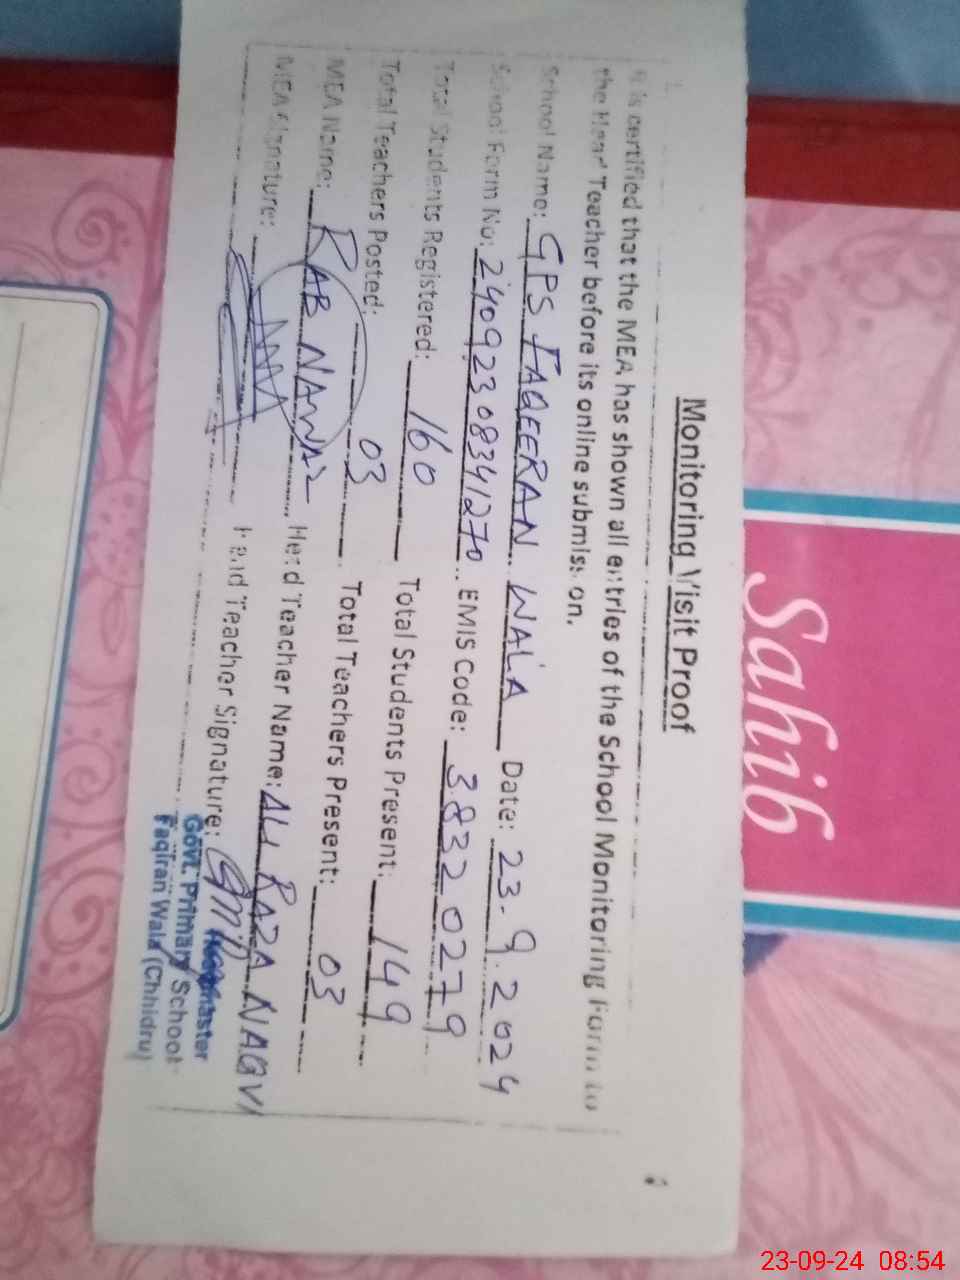 Sahib
Monitoring Visit Proof
It is certified that the MEA has shown all entries of the School Monitoring Form to
the Head Teacher before its online submission.
School Name: GPS FAQEERAN WALA Date: 23.9.2024
School Form No: 24092308341270 EMIS Code: 38320279
Total Students Registered: 160 Total Students Present: 149
Total Teachers Posted: 03 Total Teachers Present: 03
MEA Name: RAB NAWAZ Head Teacher Name: ALI RAZA NAQVI
MEA Signature: Head Teacher Signature:
Headmaster
Govt. Primary School
Faqiran Wala (Chhidru)
23-09-24 08:54